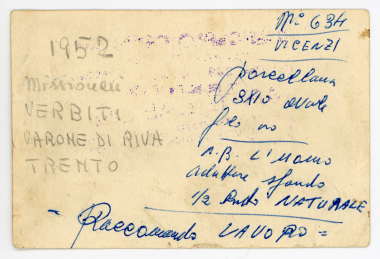 1952
Missionari
VERBITI
VARONE DI RIVA
TRENTO
N° 634
VICENZI
porcellana
9x10 ovale
filo oro
N.B. L'Uomo
adattare sfondo
1/2 Busto NATURALE
= Raccomando LAVORO =